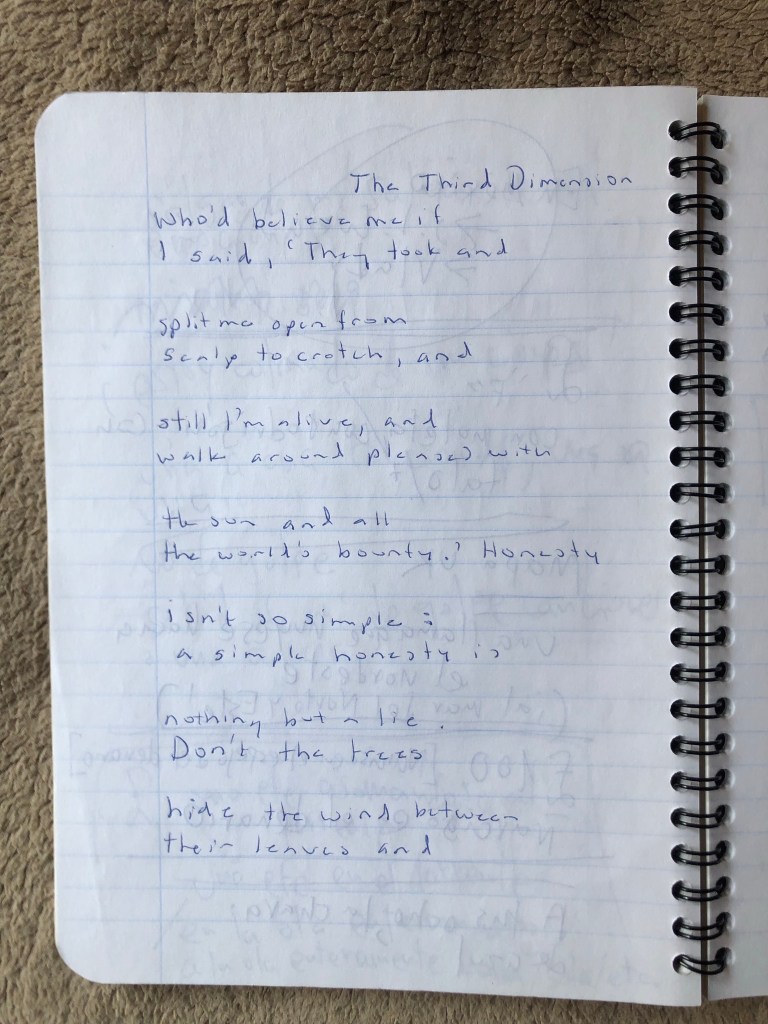 The Third Dimension
Who'd believe me if
I said, 'They took and
split me open from
scalp to crotch, and
still I'm alive, and
walk around pleased with
the sun and all
the world's bounty.' Honesty
isn't so simple:
a simple honesty is
nothing but a lie.
Don't the trees
hide the wind between
their leaves and